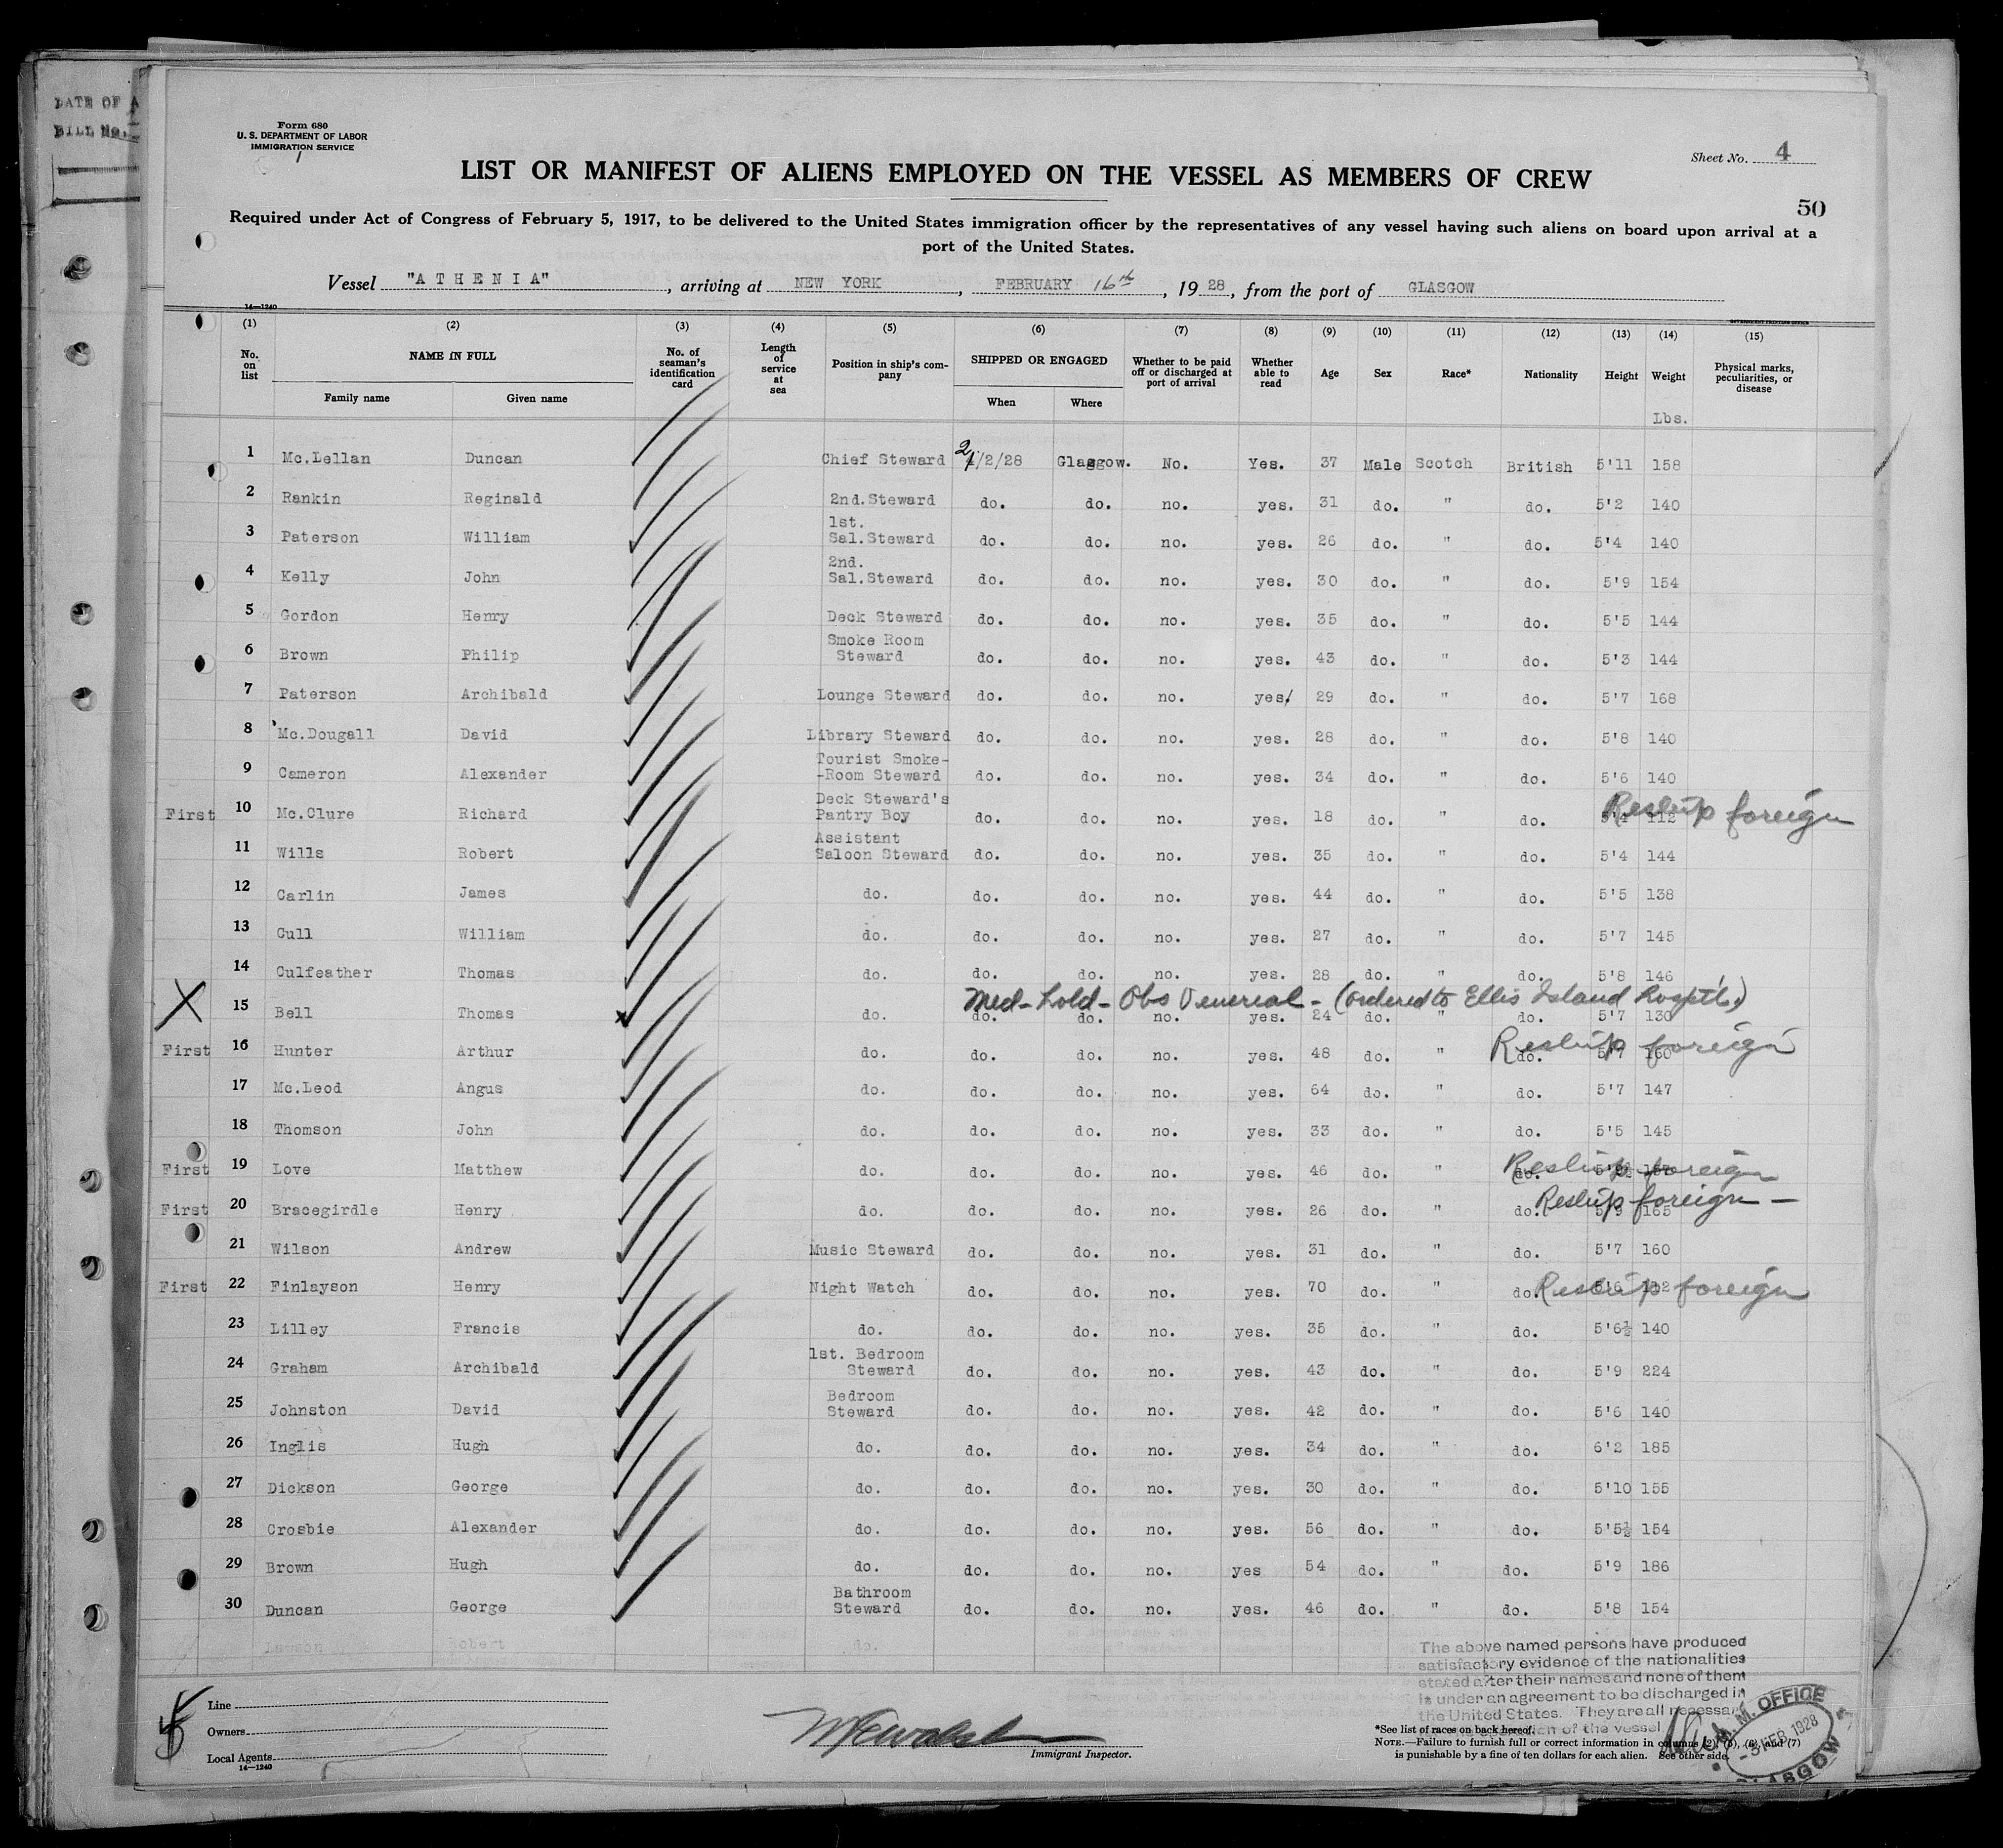 DATE OF A
BILL No.
Form 680
U. S. DEPARTMENT OF LABOR
IMMIGRATION SERVICE
Sheet No. 4
LIST OR MANIFEST OF ALIENS EMPLOYED ON THE VESSEL AS MEMBERS OF CREW
50
Required under Act of Congress of February 5, 1917, to be delivered to the United States immigration officer by the representatives of any vessel having such aliens on board upon arrival at a
port of the United States.
Vessel "ATHENIA", arriving at NEW YORK, FEBRUARY 16th, 1928, from the port of GLASGOW
14—1240
(1) (2) (3) (4) (5) (6) (7) (8) (9) (10) (11) (12) (13) (14) (15)
No. on list NAME IN FULL No. of seaman's identification card Length of service at sea Position in ship's company SHIPPED OR ENGAGED Whether to be paid off or discharged at port of arrival Whether able to read Age Sex Race* Nationality Height Weight Physical marks, peculiarities, or disease
Family name Given name When Where
Lbs.
1 Mc.Lellan Duncan Chief Steward 2/2/28 Glasgow. No. Yes. 37 Male Scotch British 5'11 158
2 Rankin Reginald 2nd.Steward do. do. no. yes. 31 do. " do. 5'2 140
3 Paterson William 1st. Sal.Steward do. do. no. yes. 26 do. " do. 5'4 140
4 Kelly John 2nd. Sal.Steward do. do. no. yes. 30 do. " do. 5'9 154
5 Gordon Henry Deck Steward do. do. no. yes. 35 do. " do. 5'5 144
6 Brown Philip Smoke Room Steward do. do. no. yes. 43 do. " do. 5'3 144
7 Paterson Archibald Lounge Steward do. do. no. yes/ 29 do. " do. 5'7 168
8 Mc.Dougall David Library Steward do. do. no. yes. 28 do. " do. 5'8 140
9 Cameron Alexander Tourist Smoke- -Room Steward do. do. no. yes. 34 do. " do. 5'6 140
First 10 Mc.Clure Richard Deck Steward's Pantry Boy do. do. no. yes. 18 do. " do. 5'4 112 Reship foreign
11 Wills Robert Assistant Saloon Steward do. do. no. yes. 35 do. " do. 5'4 144
12 Carlin James do. do. do. no. yes. 44 do. " do. 5'5 138
13 Cull William do. do. do. no. yes. 27 do. " do. 5'7 145
14 Culfeather Thomas do. do. do. no. yes. 28 do. " do. 5'8 146
Med-hold-Obs Venereal - (ordered to Ellis Island Hospt'l.)
X 15 Bell Thomas do. do. do. no. yes. 24 do. " do. 5'7 130
First 16 Hunter Arthur do. do. do. no. yes. 48 do. " do. 5'7 160 Reship foreign
17 Mc.Leod Angus do. do. do. no. yes. 64 do. " do. 5'7 147
18 Thomson John do. do. do. no. yes. 33 do. " do. 5'5 145
First 19 Love Matthew do. do. do. no. yes. 46 do. " do. Reship foreign
First 20 Bracegirdle Henry do. do. do. no. yes. 26 do. " do. 5'9 165 Reship foreign —
21 Wilson Andrew Music Steward do. do. no. yes. 31 do. " do. 5'7 160
First 22 Finlayson Henry Night Watch do. do. no. yes. 70 do. " do. 5'6 Reship foreign
23 Lilley Francis do. do. do. no. yes. 35 do. " do. 5'6½ 140
24 Graham Archibald 1st. Bedroom Steward do. do. no. yes. 43 do. " do. 5'9 224
25 Johnston David Bedroom Steward do. do. no. yes. 42 do. " do. 5'6 140
26 Inglis Hugh do. do. do. no. yes. 34 do. " do. 6'2 185
27 Dickson George do. do. do. no. yes. 30 do. " do. 5'10 155
28 Crosbie Alexander do. do. do. no. yes. 56 do. " do. 5'5½ 154
29 Brown Hugh do. do. do. no. yes 54 do. " do. 5'9 186
30 Duncan George Bathroom Steward do. do. no. yes. 46 do. " do. 5'8 154
Lawson Robert do.
The above named persons have produced
satisfactory evidence of the nationalities
stated after their names and none of them
is under an agreement to be discharged in
the United States. They are all necessary
of the vessel
Line
Owners
Local Agents
14—1240
Immigrant Inspector.
*See list of races on back hereof.
NOTE.—Failure to furnish full or correct information in columns (2), (5), (6), and (7)
is punishable by a fine of ten dollars for each alien. See other side.
M. OFFICE
3 FEB 1928
GLASGOW